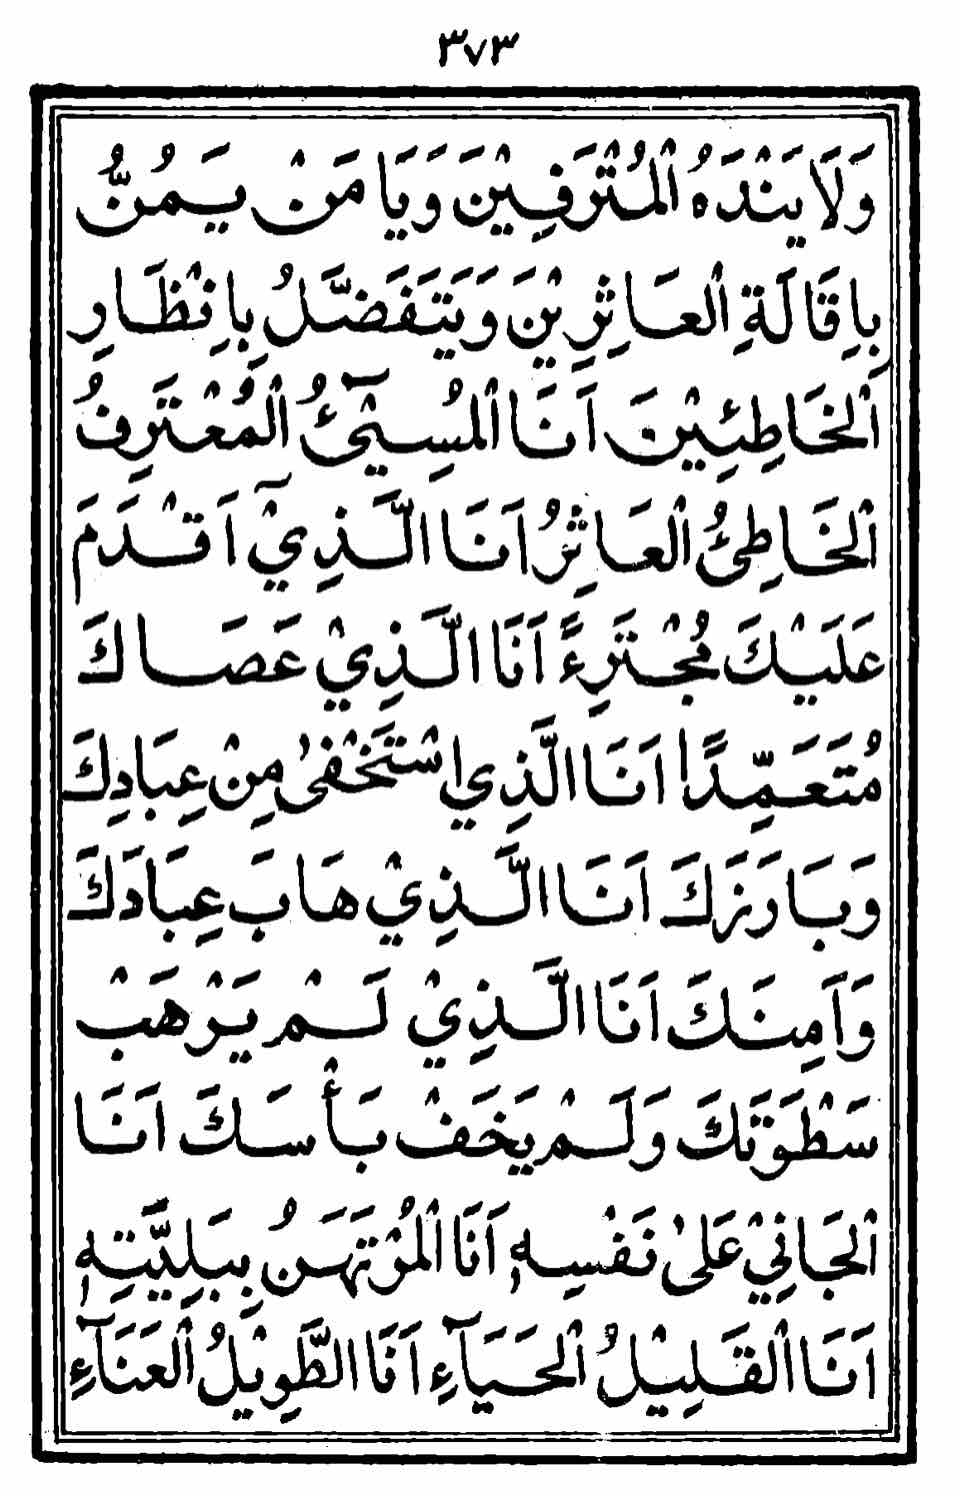 ٣٧٣
وَلَا يَنْدَهُ الْمُتْرَفِيْنَ وَيَا مَنْ يَمُنُّ
بِاِقَالَةِ الْعَاثِرِيْنَ وَيَتَفَضَّلُ بِاِنْظَارِ
الْخَاطِئِيْنَ اَنَا الْمُسِيْٓئُ الْمُعْتَرِفُ
الْخَاطِئُ الْعَاثِرُ اَنَا الَّذِيْٓ اَقْدَمَ
عَلَيْكَ مُجْتَرِءًا اَنَا الَّذِيْ عَصَاكَ
مُتَعَمِّدًا اَنَا الَّذِي اسْتَخْفٰى مِنْ عِبَادِكَ
وَبَارَزَكَ اَنَا الَّذِيْ هَابَ عِبَادَكَ
وَاَمِنَكَ اَنَا الَّذِيْ لَمْ يَرْهَبْ
سَطْوَتَكَ وَلَمْ يَخَفْ بَأْسَكَ اَنَا
الْجَانِيْ عَلٰى نَفْسِهٖ اَنَا الْمُرْتَهَنُ بِبَلِيَّتِهٖ
اَنَا الْقَلِيْلُ الْحَيَآءِ اَنَا الطَّوِيْلُ الْعَنَآءِ